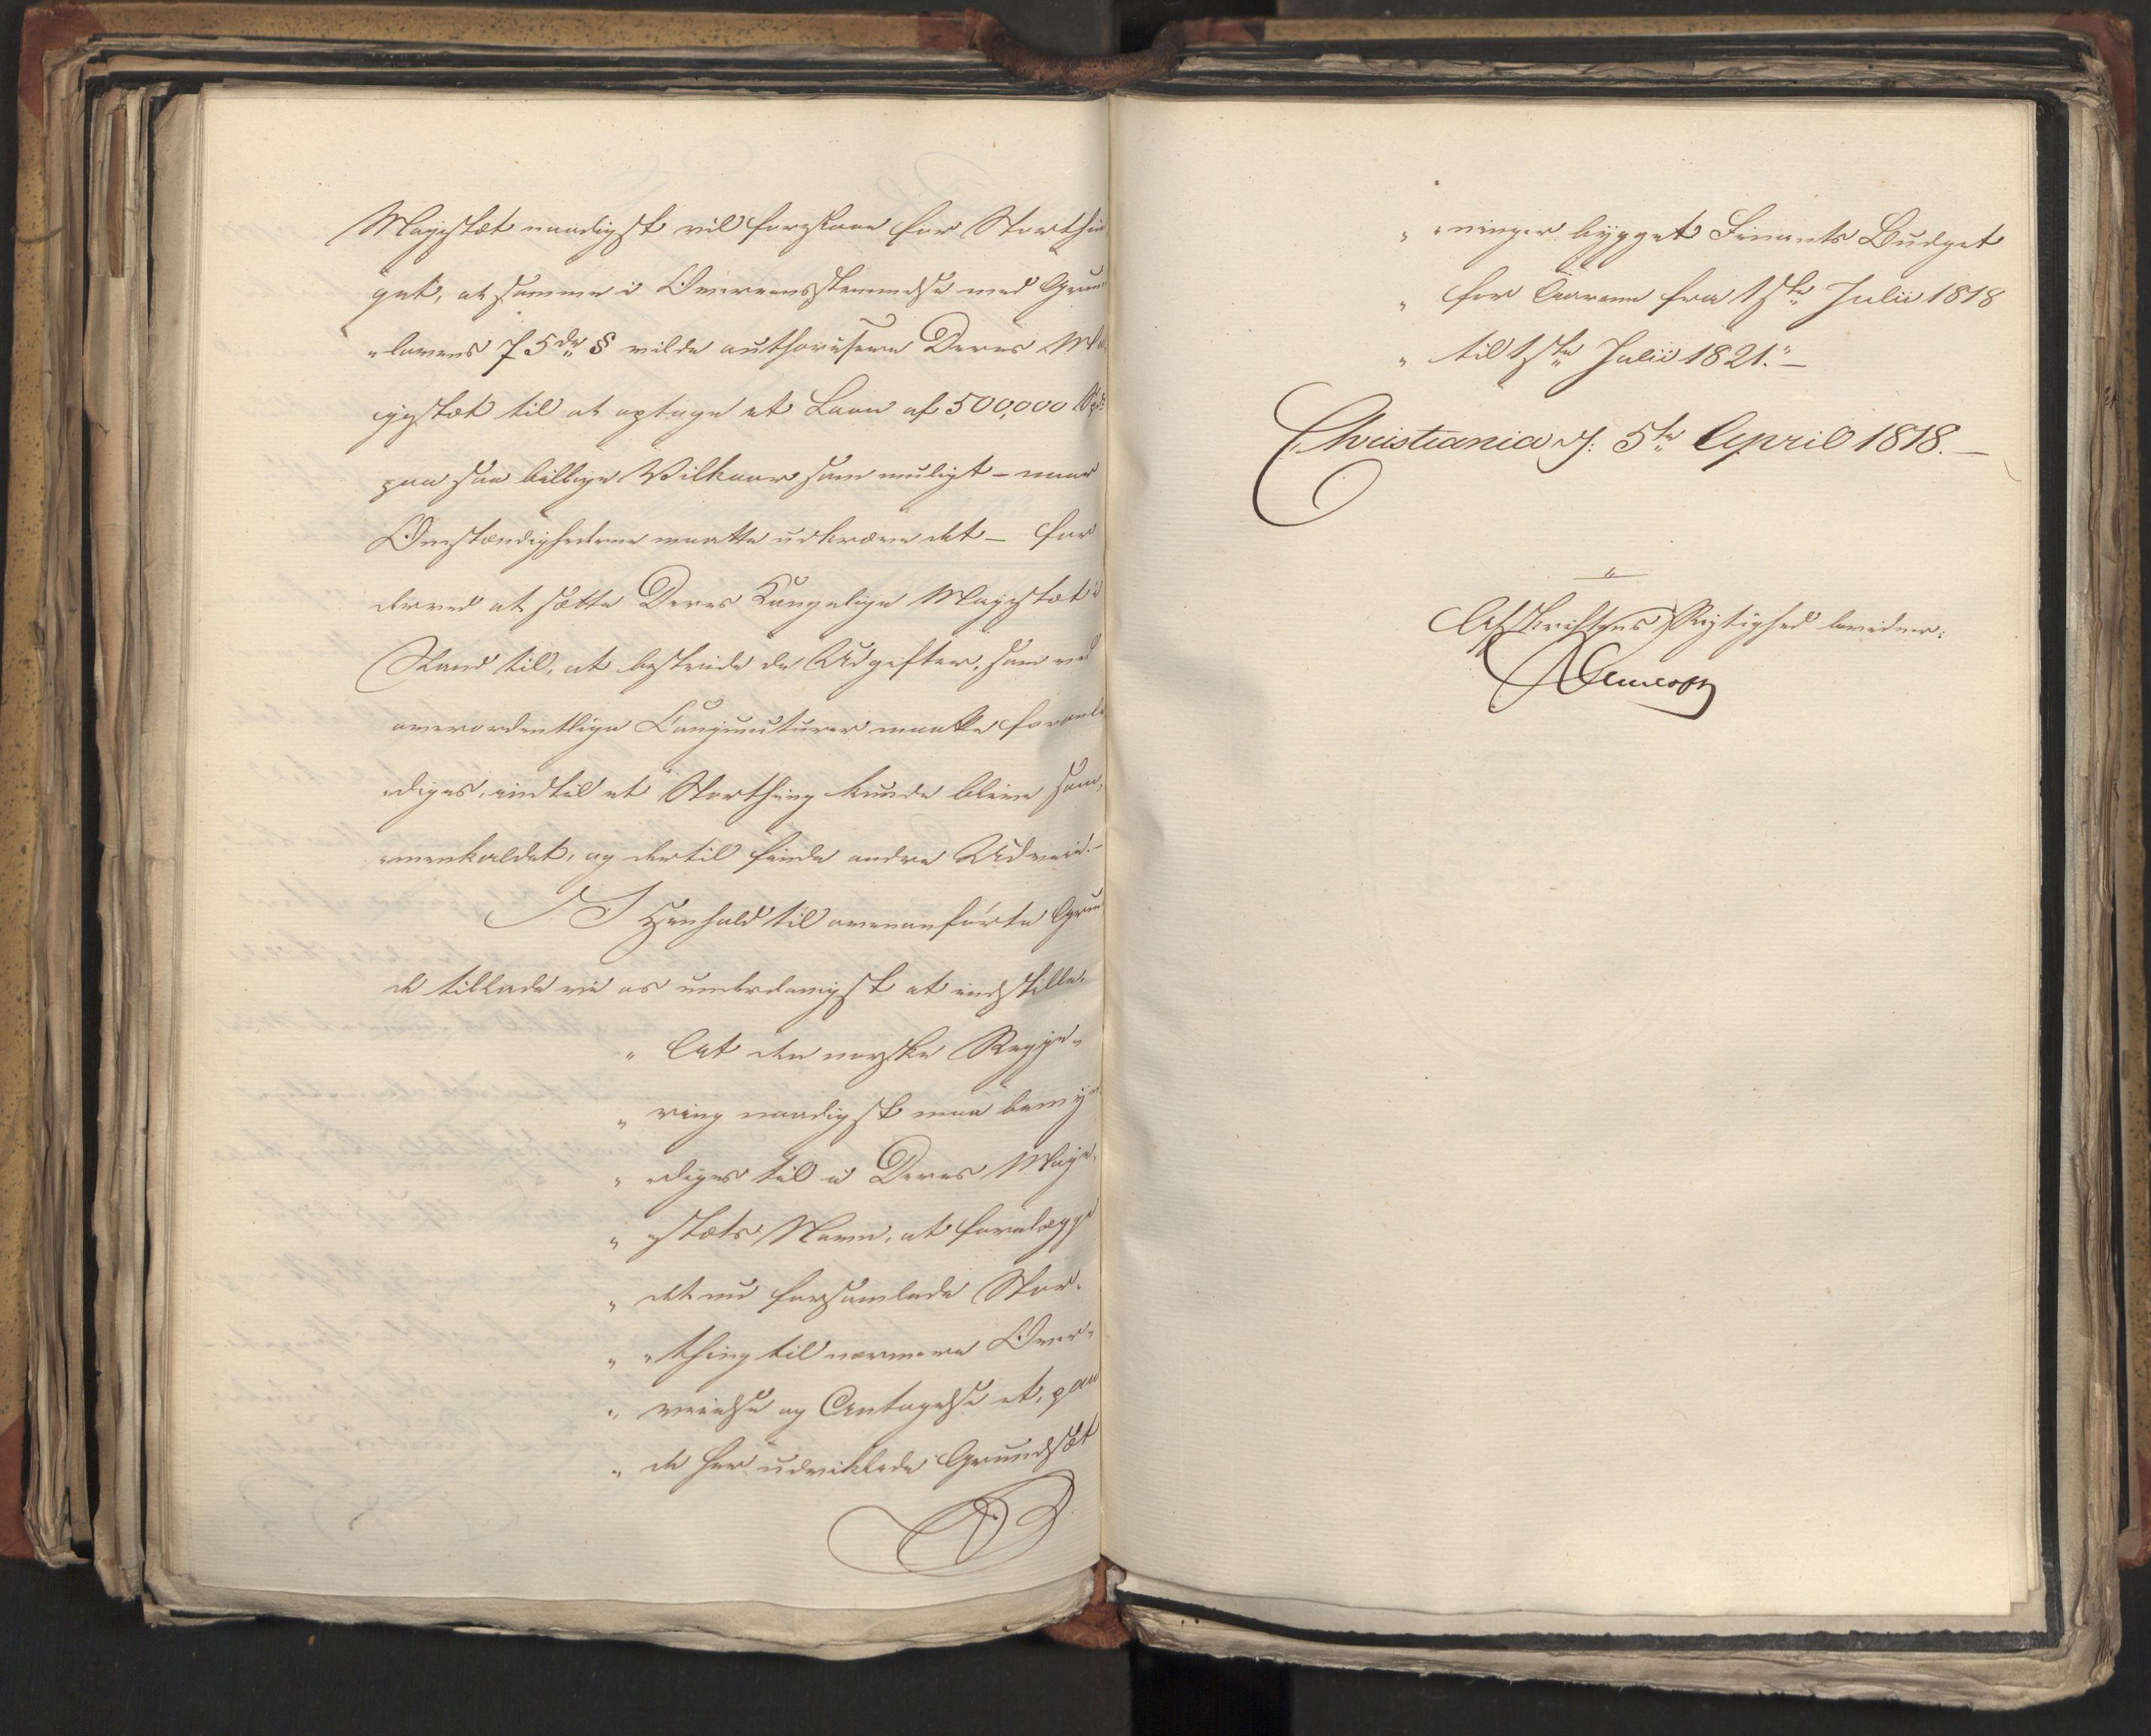 Majestæt naadigst vil foreslaae for Storthin
get, at samme i Overeensstemmelse med Grun
"lovens 75de § vilde authorisere Deres Ma
jestæt til at optage et Laan af 500,000 Spd:
paa saa billige Vilkaar som muligt – naar
Omstændighederne maatte udkræve det – for
derved at sætte Deres Kongelige Majestæt i
Stand til, at bestride de Udgifter, som ved
overordentlige Conjuncturer maatte foranle
diges, indtil et Storthing kunde blive sam,
"menkaldet, og dertil finde andre Udveie. –
I Henhold til ovenanførte Grun
de tillade vi os underdanigst at indstille:
" At den norske Regje"
" ring naadigst maa bemyn
" "diges til i Deres Maje,
" "stæts Navn, at forelægge
" det nu forsamlede Stor"
" "thing til nærmere Over"
" veielse og Antagelse et, paa
" de her udviklede Grundsæt
" "ninger bygget Finants Budget
" for Aarene fra 1ste Julii 1818
" til 1ste Julii 1821." –
Christiania d: 5te April 1818. –
Afskriftens Rigtighed bevidner: